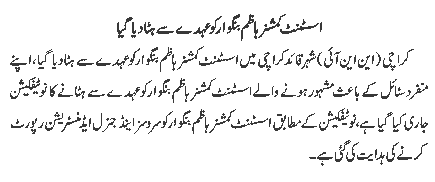 اسسٹنٹ کمشنر ہاظم بنگوار کو عہدے سے ہٹا دیا گیا
کراچی (این این آئی) شہر قائد کراچی میں اسسٹنٹ کمشنر ہاظم بنگوار کو عہدے سے ہٹا دیا گیا، اپنے
منفرد سٹائل کے باعث مشہور ہونے والے اسسٹنٹ کمشنر ہاظم بنگوار کو عہدے سے ہٹانے کا نوٹیفکیشن
جاری کیا گیا ہے، نوٹیفکیشن کے مطابق اسسٹنٹ کمشنر ہاظم بنگوار کو سروسز اینڈ جنرل ایڈمنسٹریشن رپورٹ
کرنے کی ہدایت کی گئی ہے۔